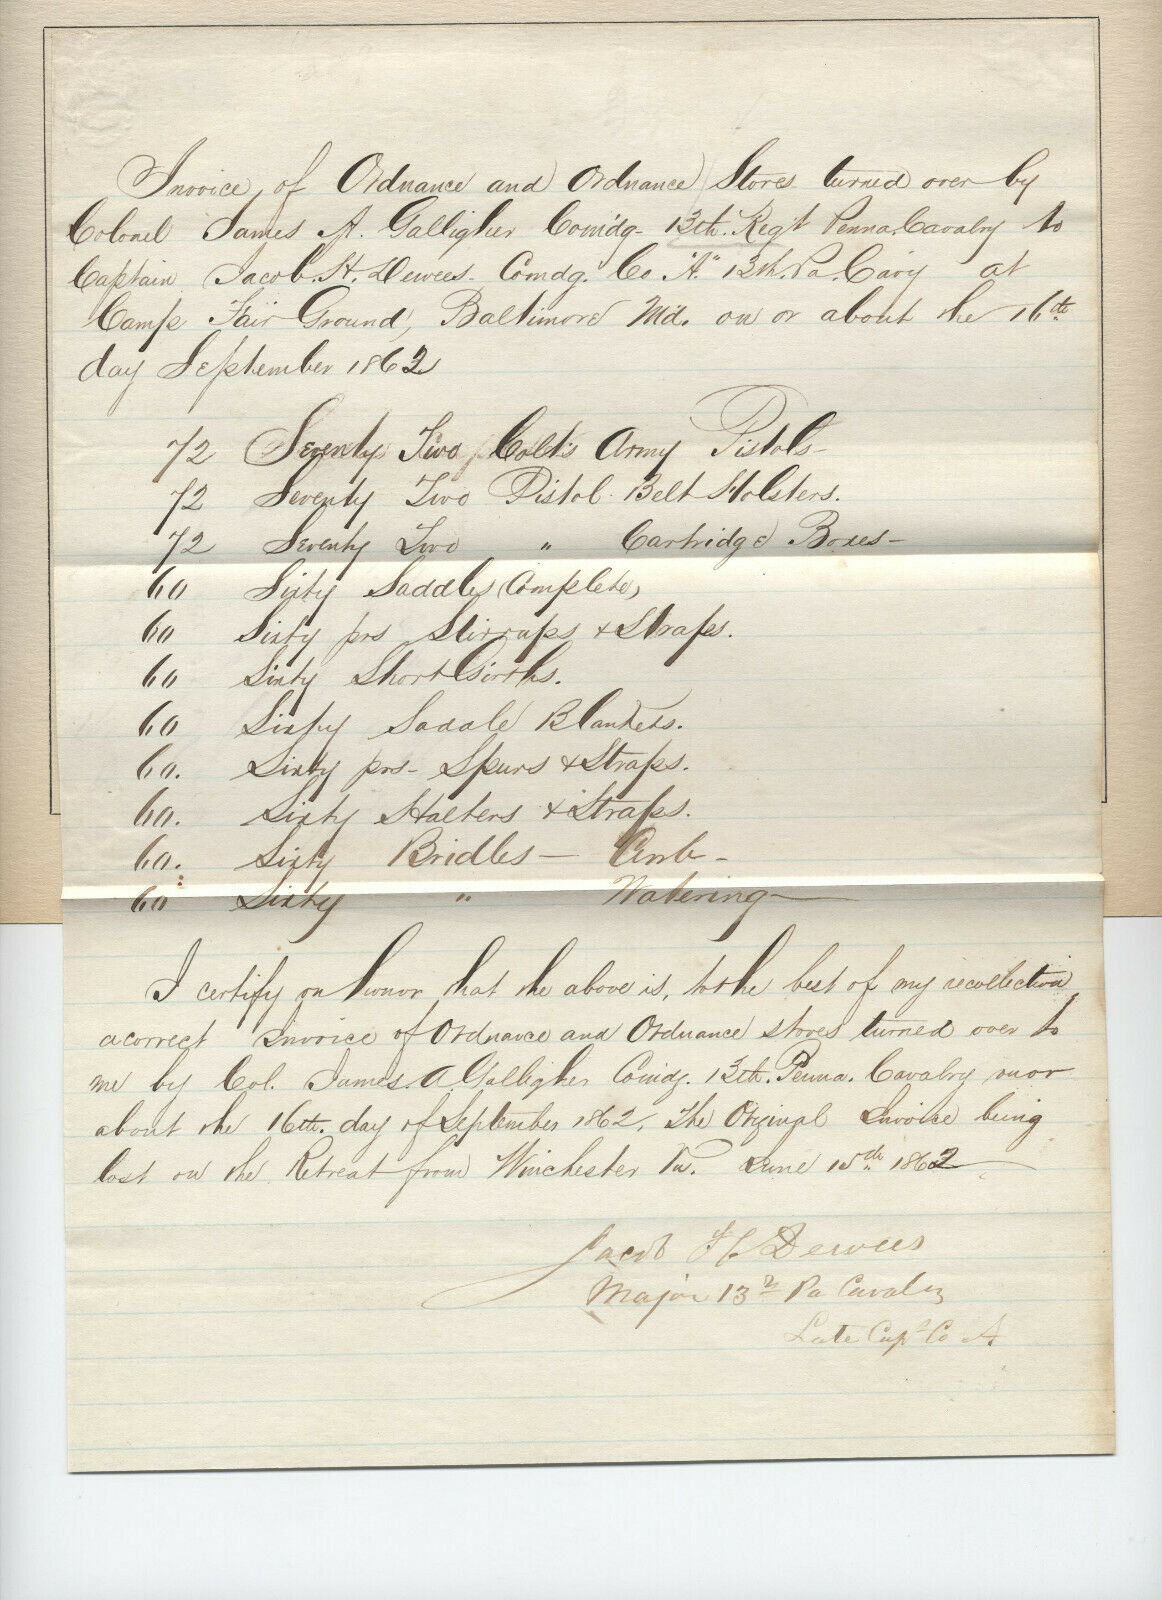 Invoice of Ordnance and Ordnance Stores turned over by
Colonel James A. Galligher Comdg. 13th. Regt Penna. Cavalry to
Captain Jacob. H. Dewees. Comdg. Co "A." 13th. Pa. Cavy at
Camp Fair Ground, Baltimore Md. on or about the 16th
day September 1862
72 Seventy Two Colt's Army Pistols-
72 Seventy Two Pistol Belt Holsters.
72 Seventy Two " Cartridge Boxes-
60 Sixty Saddles (Complete,
60 Sixty prs Stirrups & Straps.
60 Sixty Short Girths.
60 Sixty Saddle Blankets.
60. Sixty prs- Spurs & Straps.
60. Sixty Halters & Straps.
60. Sixty Bridles- Curb-
60 Sixty " Watering-
I certify on honor that the above is, to the best of my recollection
a correct Invoice of Ordnance and Ordnance stores turned over to
me by Col. James A Galligher Comdg. 13th. Penna. Cavalry on or
about the 16th. day of September 1862, The Original Invoice being
lost on the Retreat from Winchester Va. June 15th 1862
Jacob H Dewees
Major 13th Pa Cavalry
Late Capt Co A